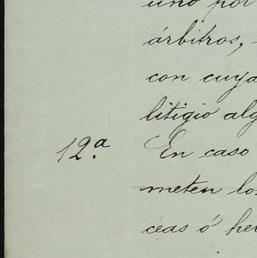 uno por
árbitros,
con cuya
litigio alg
12.ª En caso
meten los
ceas ó her